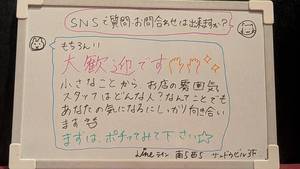 SNSで質問・お問合わせは出来ますか?
もちろん!!
大歓迎です
小さなことから、お店の雰囲気
スタッフはどんな人?なんてことでも
あなたの気になるにしっかり向き合い
ます
まずは、ポチってみて下さい☆
南5西5